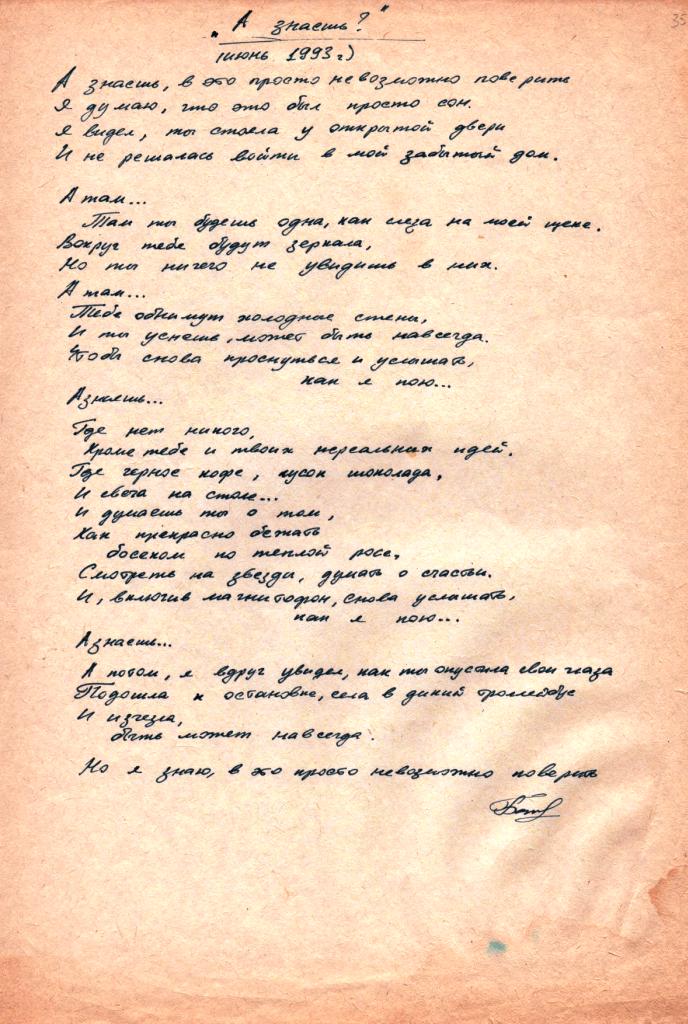 35
„А знаешь?“
(июнь 1993 г)
А знаешь, в это просто невозможно поверить
Я думаю, что это был просто сон.
Я видел, ты стояла у открытой двери
И не решалась войти в мой забытый дом.
А там...
Там ты будешь одна, как слеза на моей щеке.
Вокруг тебе будут зеркала,
Но ты ничего не увидишь в них.
А там...
Тебе обнимут холодные стены,
И ты уснешь, может быть навсегда.
Чтобы снова проснуться и услышать,
как я пою...
А знаешь...
Где нет никого,
Кроме тебе и твоих нереальных идей.
Где черное кофе, кусок шоколада,
И свеча на столе...
И думаешь ты о том,
Как прекрасно бежать
босеком по теплой росе,
Смотреть на звезды, думать о счастьи.
И, включив магнитофон, снова услышать,
как я пою...
А знаешь...
А потом, я вдруг увидел, как ты опустила свои глаза
Подошла к остановке, села в дикий троллейбус
И изчезла,
быть может навсегда.
Но я знаю, в это просто невозможно поверить